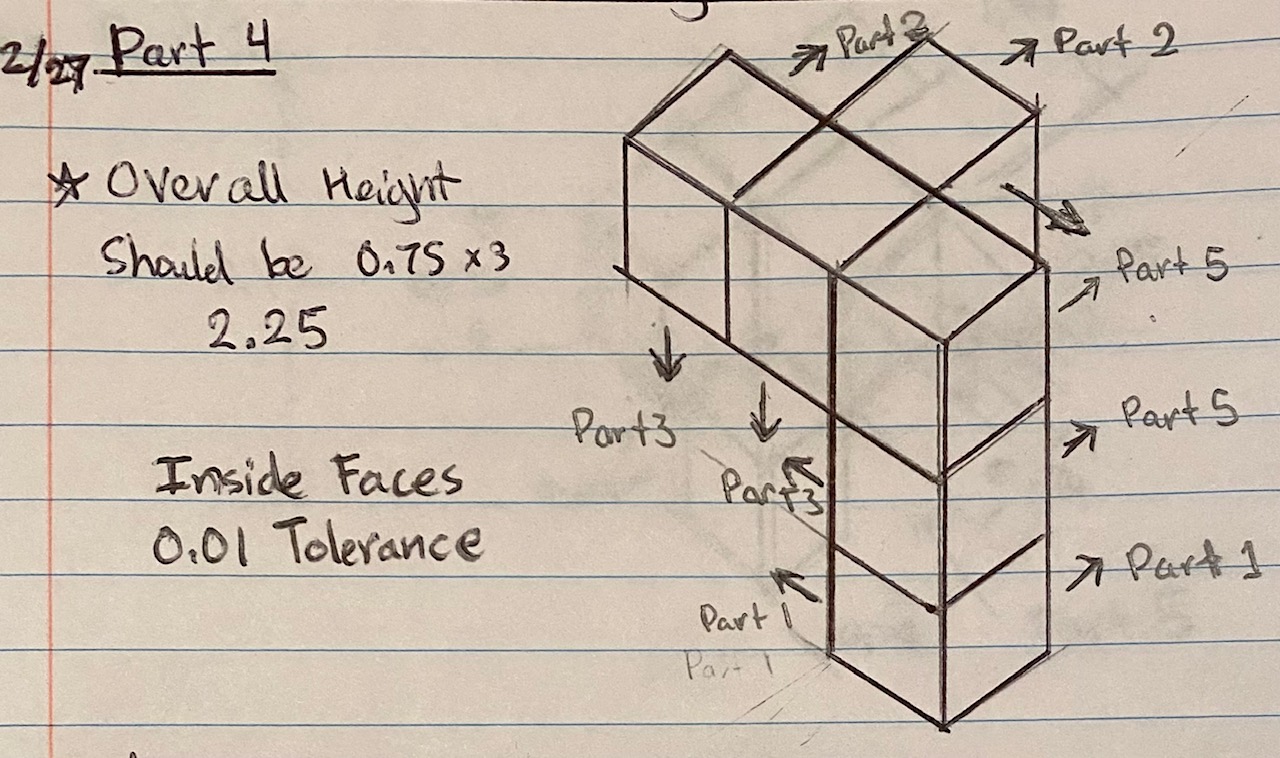 2/27 Part 4
Part 2
Part 2
☆ Overall Height
Should be 0.75 x 3
2.25
Part 5
Part 5
Part 3
Part 3
Inside Faces
0.01 Tolerance
Part 1
Part 1
Part 1